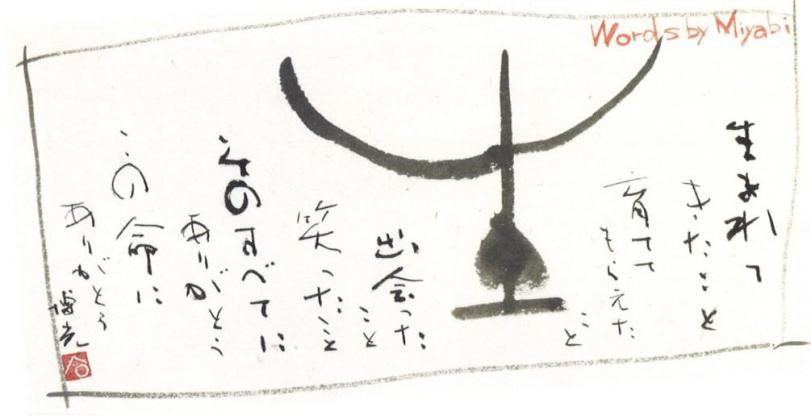 Words by Miyabi
生まれて
きたこと
育てて
もらえた
こと
出会った
こと
笑ったこと
そのすべてに
ありがとう
この命に
ありがとう
博光